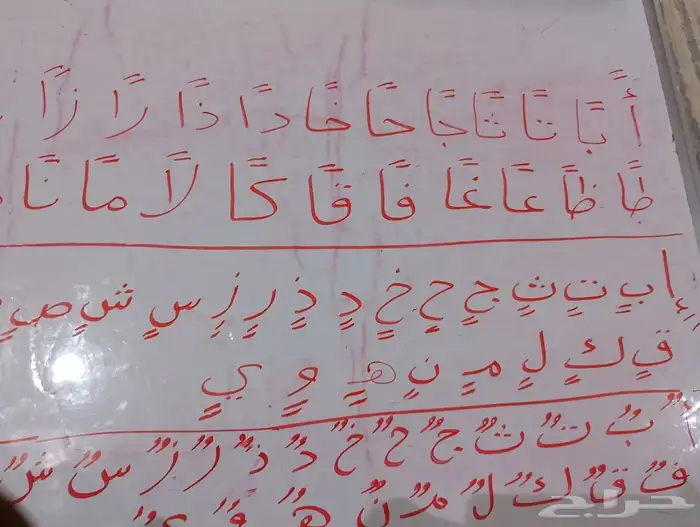 أً بًا تًا ثًا جًا حًا خًا دًا ذًا رًا زًا
طًا ظًا عًا غًا فًا قًا كًا لًا مًا نًا
إٍ بٍ تٍ ثٍ جٍ حٍ خٍ دٍ ذٍ رٍ زٍ سٍ شٍ صٍ
قٍ كٍ لٍ مٍ نٍ هٍ وٍ يٍ
بٌ تٌ ثٌ جٌ حٌ خٌ دٌ ذٌ رٌ زٌ سٌ شٌ
فٌ قٌ كٌ لٌ مٌ نٌ هٌ وٌ يٌ
حراج